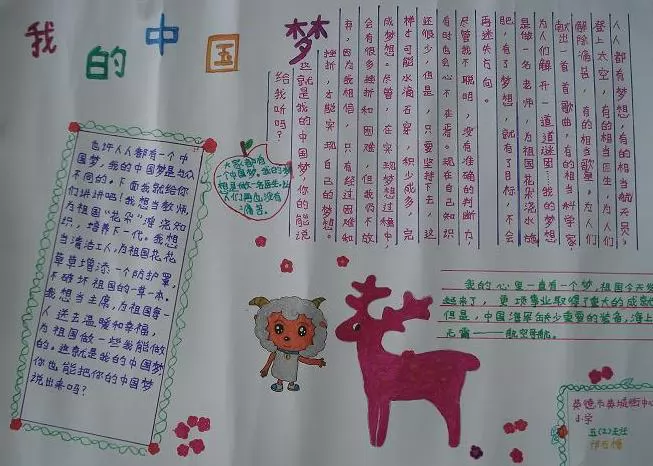 我的中国梦
也许人人都有一个中
国梦，我的中国梦是与众
不同的。下面我就给你
们讲讲吧！我想当教师，
为祖国“花朵”灌浇知
识，培养下一代。我想
当清洁工人，为祖国花花
草草增添一个防护罩，
不破坏祖国的一草一木。
我想当主席，为祖国每一
人送去温暖和幸福，
为祖国做一些我能做
的。这就是我的中国梦
你也能把你的中国梦
说出来吗？
大家都有
一个中国梦。我的梦
想是做一名医生，让
人们再也没有
痛苦。
人人都有梦想，有的相当航天员，
登上太空，有的相当医生，为人们
解除痛苦，有的相当歌星，为人们
献出一首首歌曲，有的相当科学家
为人们解开一道道迷团…我的梦想
是做一名老师，为祖国花朵浇水施
肥，有了梦想，就有了目标，不会
再迷失方向。
尽管我不聪明，没有准确的判断力，
有时也会心不在焉。现在自己知识
还很少，但是，只要坚持下去，这
样才可能水滴石穿，积少成多，完
成梦想。尽管，在实现梦想过程中，
会有很多挫折和困难，但我仍不放
弃，因为我相信，只有经过困难和
挫折，才能实现自己的梦想。
这就是我的中国梦，你的能说
给我听吗？
我的心里一直有一个梦，祖国今天发
起来了，更项事业取得了重大的成就
但是，中国海军缺少重要的装备，海上
无霸——航空母舰。
英德市英城街中心
小学
五(2)主任